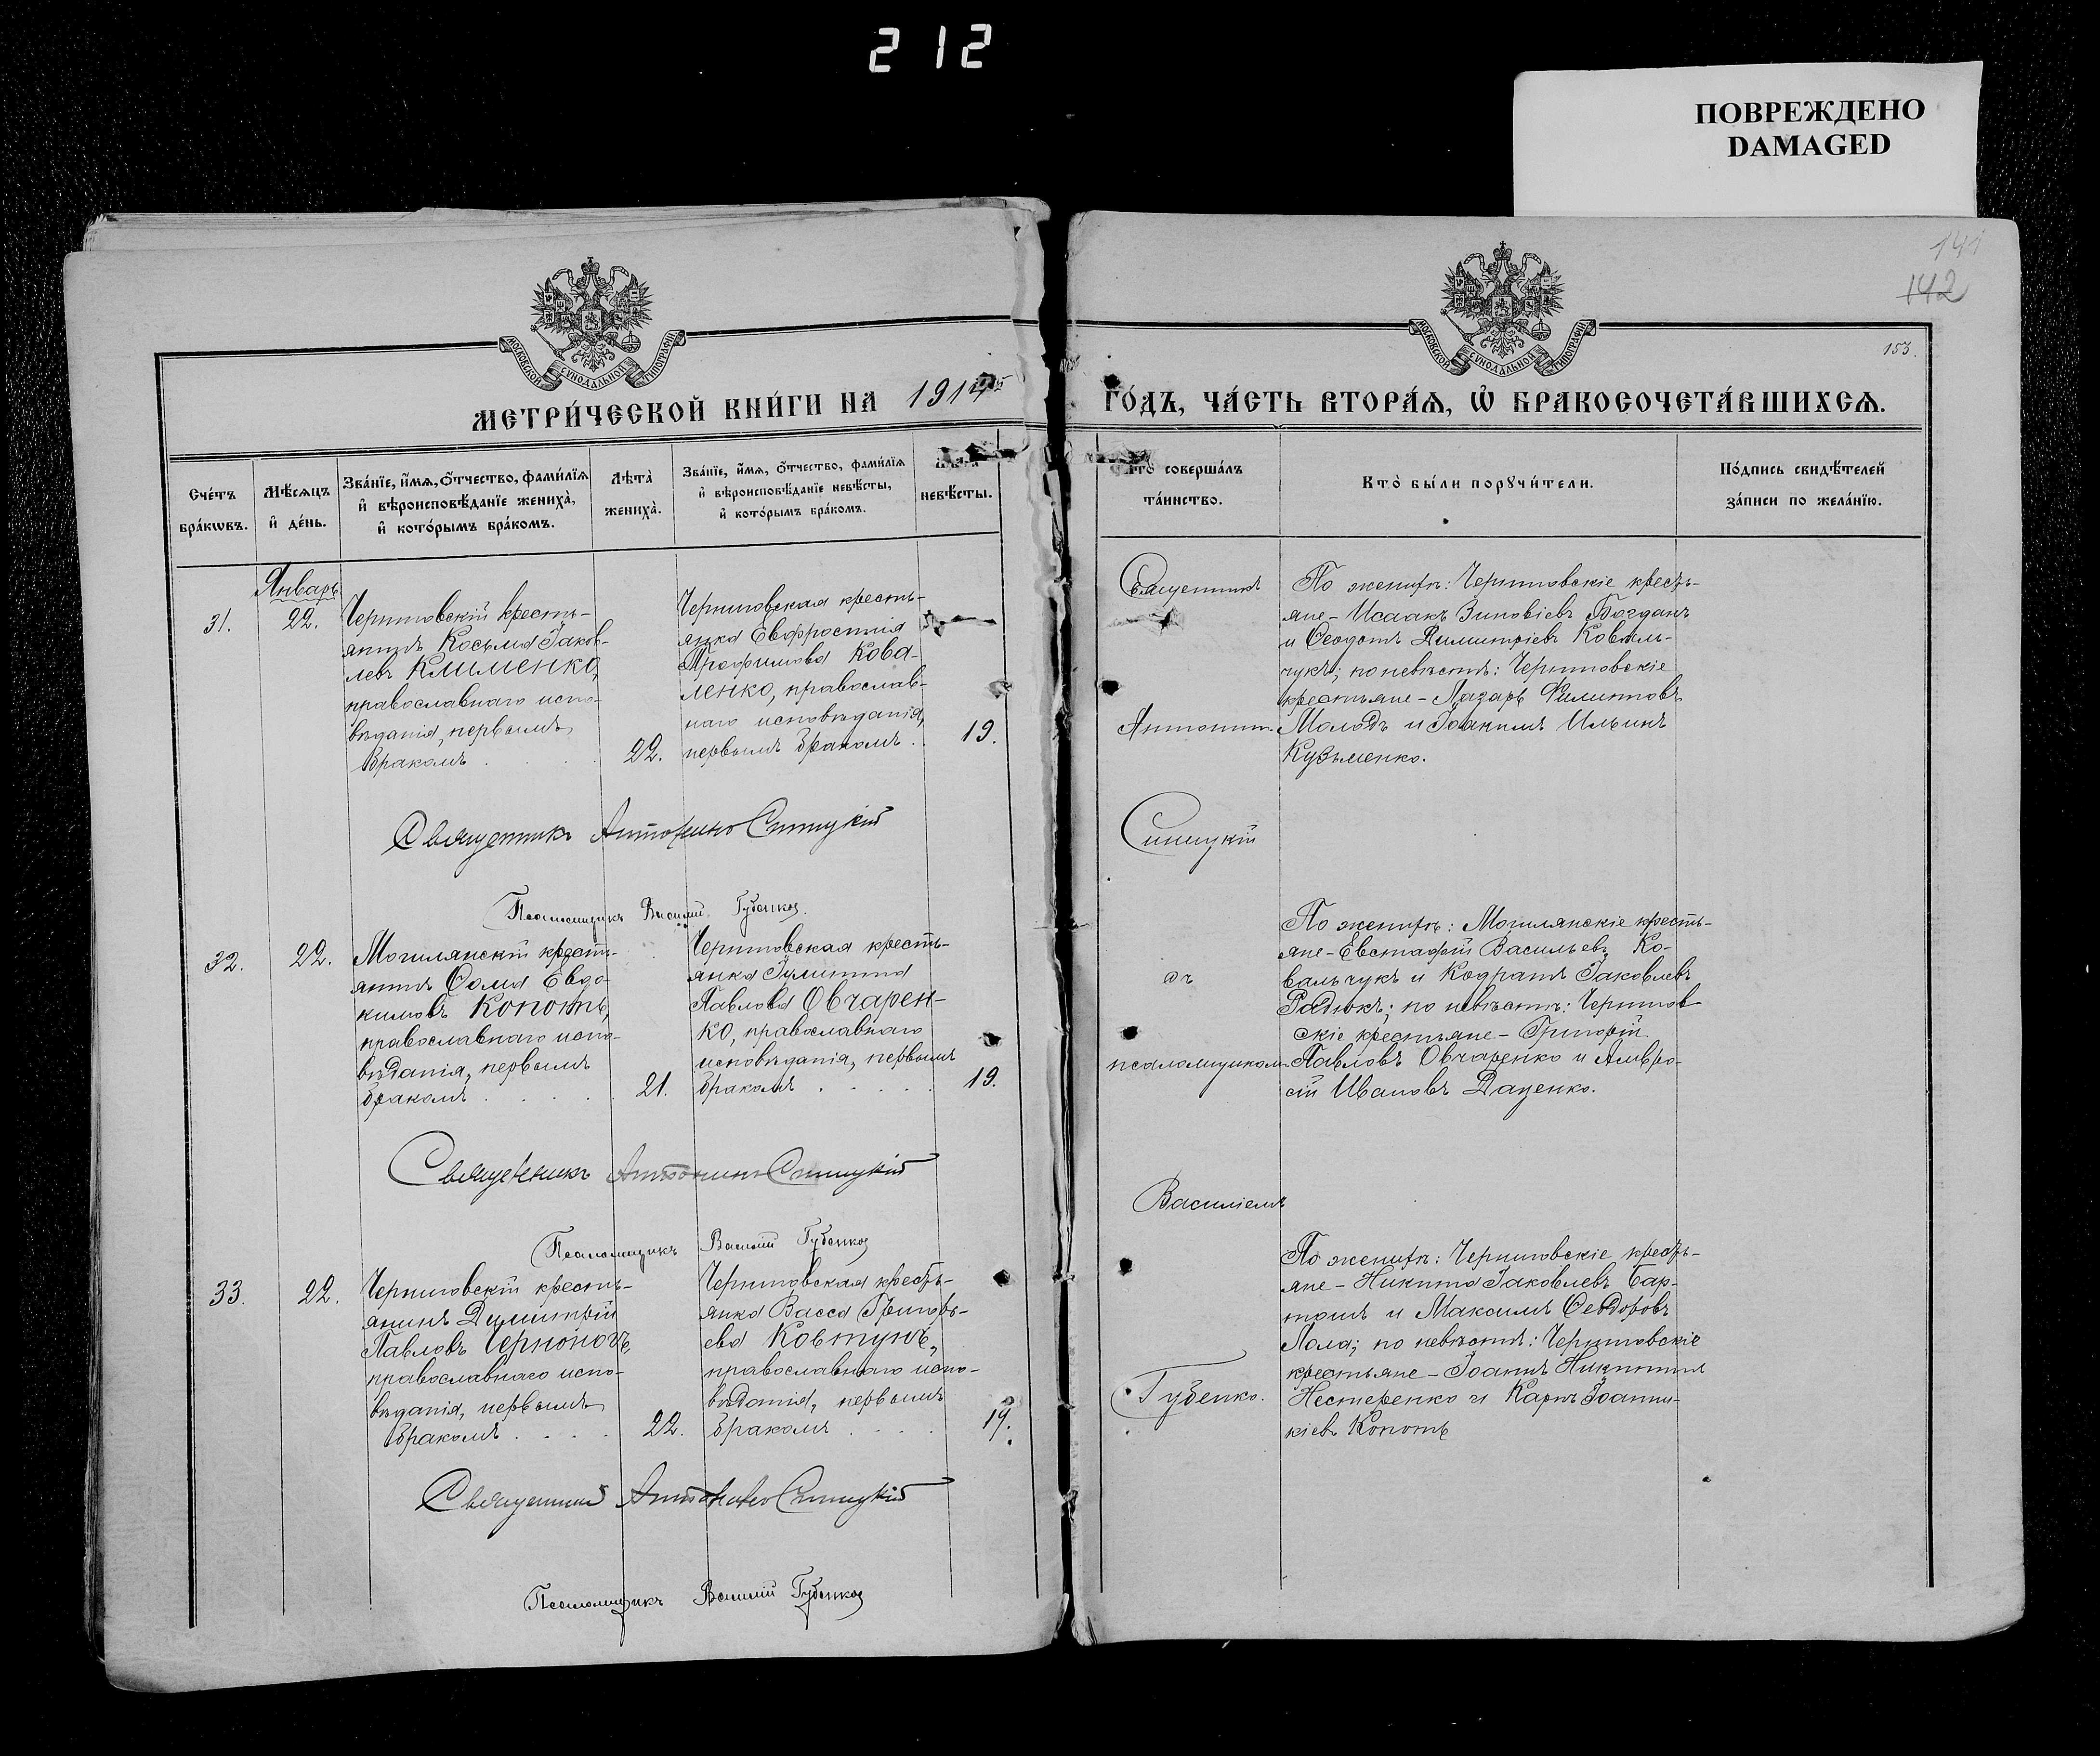 212
ПОВРЕЖДЕНО
DAMAGED
141
142
153.
МОСКОВСКОЙ СѴНОДАЛЬНОЙ ТИПОГРАФІИ
МОСКОВСКОЙ СѴНОДАЛЬНОЙ ТИПОГРАФІИ
МЕТРИ́ЧЕСКОЙ КНИ́ГИ НА 1914
ГО́ДЪ, ЧА́СТЬ ВТОРА́Я, Ѡ҆ БРАКОСОЧЕТА́ВШИХСЯ.
Сче́тъ
бра́кѡвъ.
Мѣ́сяцъ
и҆ де́нь.
Зва́нїе, и҆́мя, ѻ҆́тчество, фами́лїя
и҆ вѣроисповѣ́данїе жениха̀,
и҆ кото́рымъ бра́комъ.
Лѣта̀
жениха̀.
Зва́нїе, и҆́мя, ѻ҆́тчество, фами́лїя
и҆ вѣроисповѣ́данїе невѣ́сты,
и҆ кото́рымъ бра́комъ.
невѣ́сты.
соверша́лъ
та́инство.
Кто̀ бы́ли порꙋчи́тели.
По́дпись свидѣ́телей
за́писи по жела́нїю.
Январь
31.
22.
Черниговскій кресть-
янинъ Косьма Іаков-
левъ Клименко,
православнаго испо-
вѣданія, первымъ
бракомъ
22.
Черниговская кресть-
янка Евфросинія
Трофимова Кова-
ленко, православ-
наго исповѣданія,
первымъ бракомъ.
19.
Священникъ
Антонин.
Синицкій
По женихѣ: Черниговскіе кресть-
яне - Исаакъ Зиновіевъ Богданъ
и Ѳеодотъ Димитріевъ Коваль-
чукъ; по невѣстѣ: Черниговскіе
крестьяне - Лазарь Филипповъ
Молодъ и Іоакимъ Ильинъ
Кузьменко.
Священникъ Антонинъ Синицкій
Псаломщикъ Василій Губенко
32.
22.
Могилянскій кресть-
янинъ Ѳома Евдо-
кимовъ Копоть,
православнаго испо-
вѣданія, первымъ
бракомъ
21.
Черниговская кресть-
янка Іулитта
Павлова Овчарен-
ко, православнаго
исповѣданія, первымъ
бракомъ
19.
съ
псаломщиком
Василіемъ
По женихѣ: Могилянскіе кресть-
яне - Евстафій Васильевъ Ко-
вальчукъ и Кодратъ Іаковлевъ
Радюкъ; по невѣстѣ: Чернигов-
скіе крестьяне - Григорій
Павловъ Овчаренко и Амвро-
сій Ивановъ Даценко.
Священникъ Антонинъ Синицкій
Псаломщикъ Василій Губенко
33.
22.
Черниговскій кресть-
янинъ Димитрій
Павловъ Черноногъ,
православнаго испо-
вѣданія, первымъ
бракомъ
22.
Черниговская кресть-
янка Васса Григорь-
ева Ковтунъ,
православнаго испо-
вѣданія, первымъ
бракомъ
19.
Губенко.
По женихѣ: Черниговскіе кресть-
яне - Никита Іаковлевъ Бар-
и Максимъ Ѳеодоровъ
по невѣстѣ: Черниговскіе
крестьяне - Іоаннъ Никитинъ
Нестеренко и Карпъ Іоанни-
кіевъ Копоть
Священникъ Антонинъ Синицкій
Псаломщикъ Василій Губенко